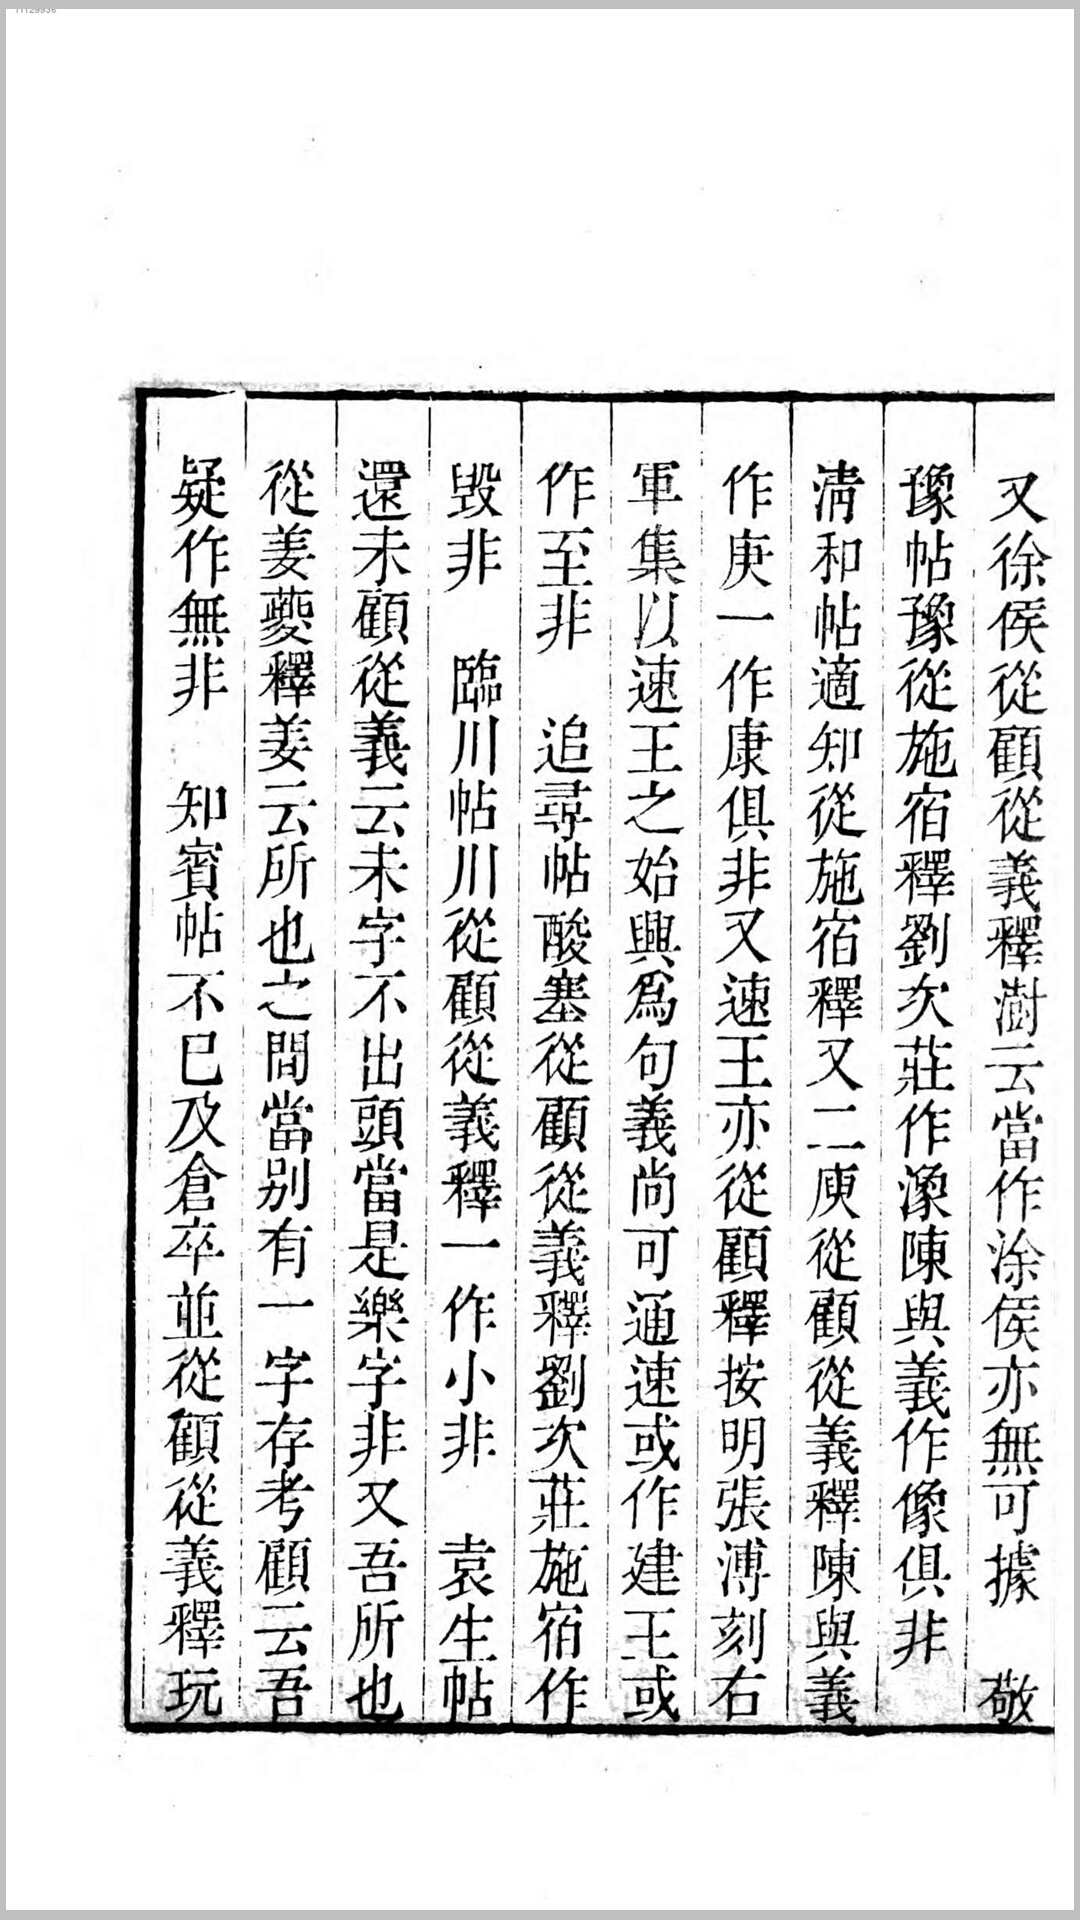 又徐侯從顧從義釋澍云當作涂侯亦無可據　敬
豫帖豫從施宿釋劉次莊作潒陳與義作像俱非
清和帖適知從施宿釋又二庾從顧從義釋陳與義
作庚一作康俱非又速王亦從顧釋按明張溥刻右
軍集以速王之始興爲句義尚可通速或作建王或
作至非　追尋帖酸塞從顧從義釋劉次莊施宿作
毀非　臨川帖川從顧從義釋一作小非　袁生帖
還未顧從義云未字不出頭當是樂字非又吾所也
從姜夔釋姜云所也之間當别有一字存考顧云吾
疑作無非　知賓帖不已及倉卒並從顧從義釋玩